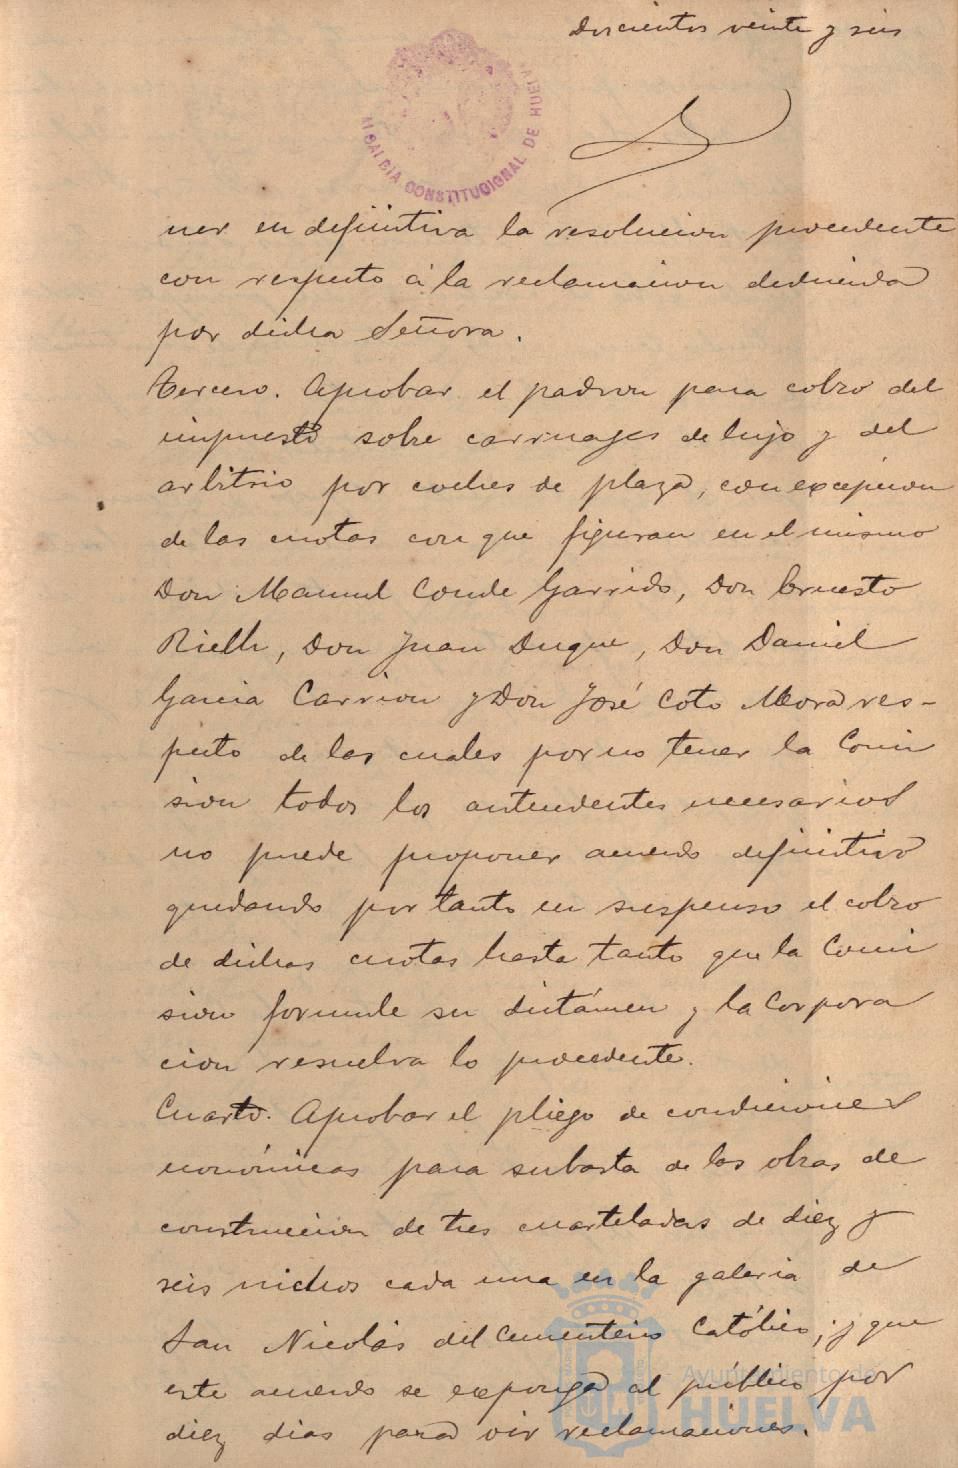 doscientos veinte y seis
ALCALDIA CONSTITUCIONAL DE HUELVA
ner en definitiva la resolucion procedente
con respecto á la reclamacion deducida
por dicha Señora.
Tercero. Aprobar el padron para cobro del
impuesto sobre carruages de lujo y del
arbitrio por coches de plaza, con excepcion
de las cuotas con que figuran en el mismo
Don Manuel Conde Garrido, Don Ernesto
Rieth, Don Juan Duque, Don Daniel
Garcia Carrion y Don José Coto Mora res-
pecto de las cuales por no tener la Comi
sion todos los antecedentes necesarios
no puede proponer acuerdo definitivo
quedando por tanto en suspenso el cobro
de dichas cuotas hasta tanto que la Comi
sion formule su dictámen y la Corpora
cion resuelva lo procedente.
Cuarto. Aprobar el pliego de condiciones
económicas para subasta de las obras de
construccion de tres cuarteladas de diez y
seis nichos cada una en la galeria de
San Nicolás del Cementerio Católico; y que
este acuerdo se exponga al público por
diez dias para oir reclamaciones.
Ayuntamiento de
HUELVA